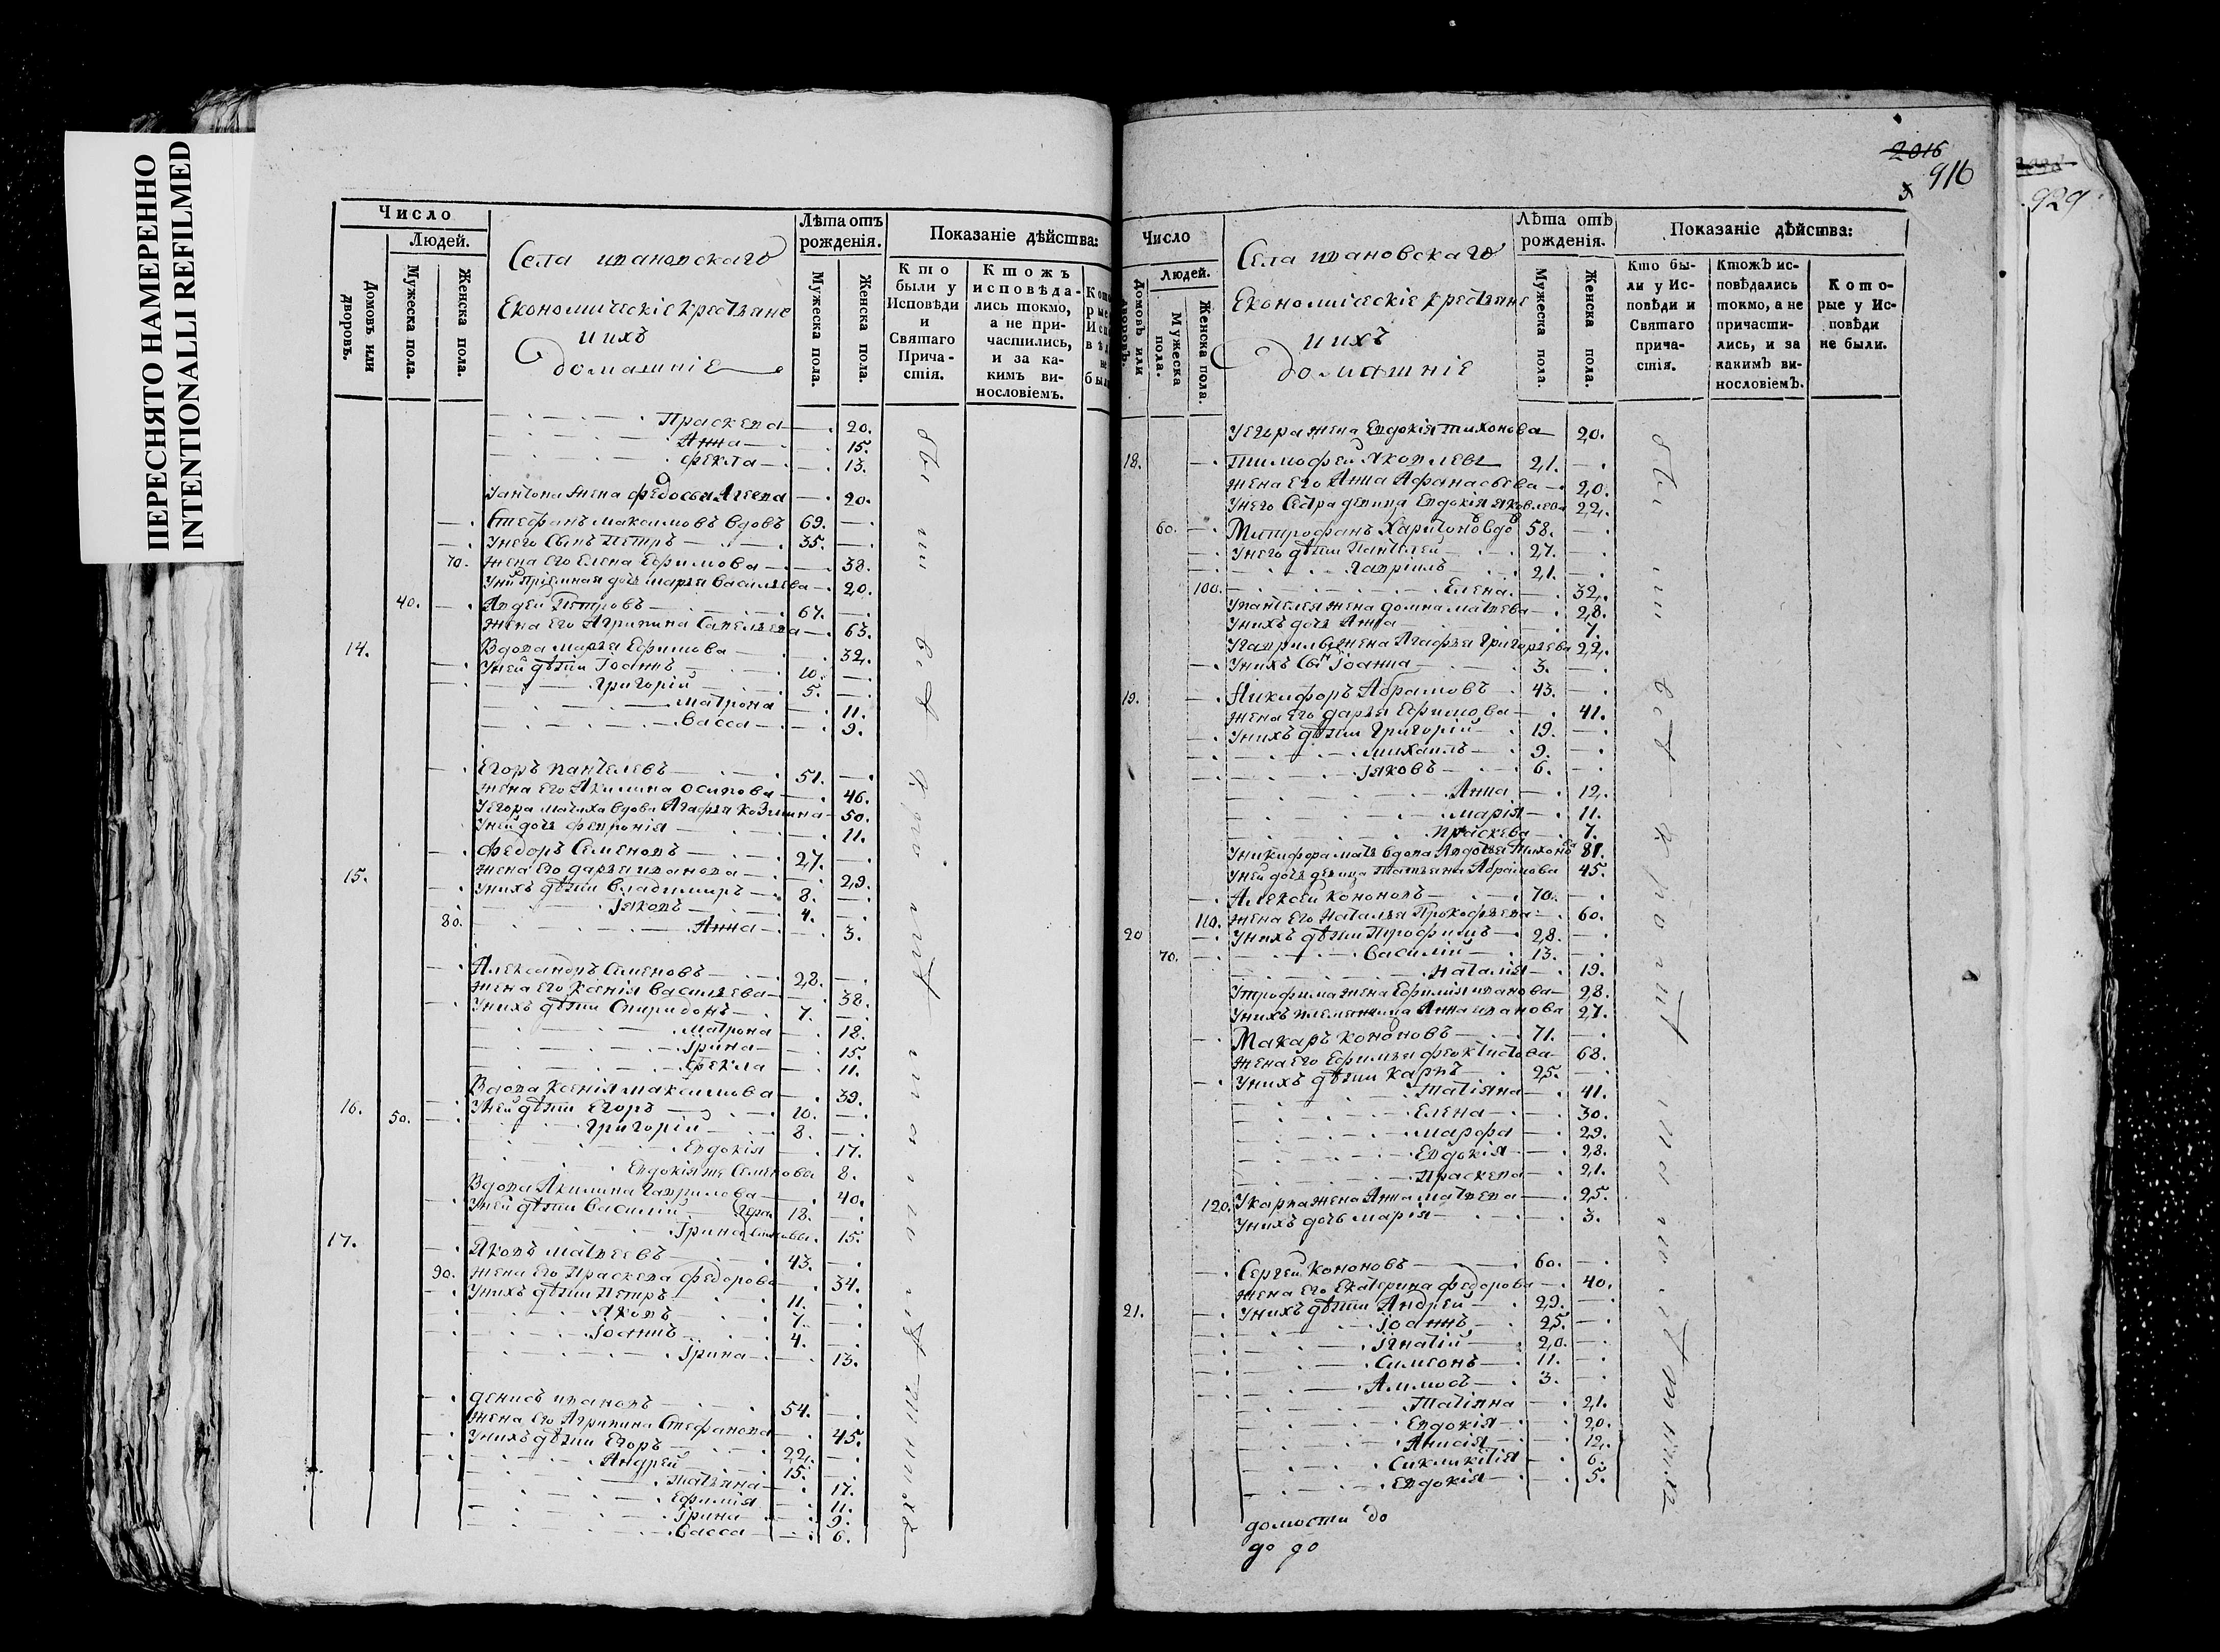 ПЕРЕСНЯТО НАМЕРЕННО
INTENTIONALLI REFILMED
Число
Людей.
Домовъ или дворовъ.
Мужеска пола.
Женска пола.
Села ивановскаго
Економическіе крестьяне
и ихъ
домашніе
Лѣта отъ рожденія.
Мужеска пола.
Женска пола.
Показаніе дѣйства:
Кто были у Исповѣди и Святаго Прича-стія.
Ктожъ исповѣда-лись токмо, а не при-частились, и за ка-кимъ ви-нословіемъ.
Праскева — 20.
Анна — 15.
Фекла — 13.
Уантона жена Федосья Агеева — 20.
Стефанъ максимовъ вдовъ 69. —
Унего сынъ Петръ — 35. —
70. Жена Его Елена Ефимова — 38.
Унихъ пріемная дочь марья васильева — 20.
40. Авдей Петровъ — 67. —
Жена Его Агрипина Савельева — 63.
14. Вдова марья Ефимова — 32.
Уней дѣти Іоаннъ — 10. —
Григорій 5. —
Матрона — 11.
Васса — 9.
Егоръ пантелевъ — 51. —
Жена Его Акилина осипова — 46.
Уегора мачиха вдова Агафья Козмина — 50.
Уней дочь февронія — 11.
Федоръ Семеновъ — 27. —
15. Жена Его дарья иванова — 29.
Унихъ дѣти владимиръ — 8. —
Іяковъ — 4. —
80. Анна — 3.
Александръ Семеновъ — 28. —
Жена Его Ксенія васильева — 38.
Унихъ дѣти Спиридонъ — 7. —
Матрона — 18.
Ірина — 15.
Фекла — 11.
Вдова Ксенія максимова — 39.
16. 50. Уней дѣти Егоръ — 10. —
Григорій 8. —
Евдокія — 17.
Евдокія же Семенова 8.
Вдова Акилина Гаврилова — 40.
Уней дѣти василій 18. —
Ірина 15.
17. Яковъ матвеевъ — 43. —
90. Жена Его Праскева федорова — 34.
Унихъ дѣти Петръ 11. —
Яковъ 7. —
Іоаннъ 4. —
Ірина — 13.
денисъ ивановъ — 54. —
Жена Его Агрипина Стефанова — 45.
Унихъ дѣти Егоръ — 22. —
Андрей 15. —
татьяна — 17.
Ефимія — 11.
Ірина — 9.
Васса — 6.
2016
916
929
Число
Людей.
Домовъ или дворовъ.
Мужеска пола.
Женска пола.
Села ивановскаго
Економическіе крестьяне
и ихъ
домашніе
Лѣта отъ рожденія.
Мужеска пола.
Женска пола.
Показаніе дѣйства:
Кто бы-ли у Ис-повѣди и Святаго прича-стія.
Ктожъ ис-повѣдались токмо, а не причасти-лись, и за какимъ ви-нословіемъ.
Кото-рые у Ис-повѣди не были.
Уегора жена Евдокія тихонова — 20.
18. Тимофей яковлевъ 21. —
Жена Его Анна Афанасьева — 20.
Унего Сестра девица Евдокія яковлева 22.
60. Митрофанъ Харитоновъ вдовъ 58. —
Унего дѣти Пантелей 27. —
гавріилъ 21. —
100. Елена — 32.
Упантелея жена домна матвева — 28.
Унихъ дочь Анна — 7.
Угаврилы жена Агафья Григорьева 22.
Унихъ Сынъ Іоанна — 3. —
19. Никифоръ Абрамовъ 43. —
Жена Его дарья Ефимова — 41.
Унихъ дѣти Григорій — 19. —
михаилъ — 9. —
Іяковъ — 6. —
Анна — 12.
Марія — 11.
Праскева — 7.
Уникифора мать вдова Авдотья Тихонова 81.
Уней дочь девица Татьяна Абрамова 45.
Алексей Кононовъ — 70. —
110. Жена Его Наталья Прокофьева — 60.
20 Унихъ дѣти Трофимъ — 28. —
70. Василій — 13. —
Наталія — 19.
Утрофима жена Ефимія иванова — 28.
Унихъ племянница Анна иванова 27.
Макаръ Кононовъ — 71. —
Жена Его Ефимья феоктистова 68.
Унихъ дѣти Карпъ — 25. —
Татіяна — 41.
Елена — 30.
Марфа — 29.
Евдокія — 28.
Праскева — 21.
120. Укарпа жена Анна матвева — 25.
Унихъ дочь марія — 3.
Сергей Кононовъ — 60. —
Жена Его Екатерина федорова — 40.
21. Унихъ дѣти Андрей — 29. —
Іоаннъ — 25. —
Ігнатій — 20. —
Симеонъ — 11. —
Аммосъ — 3. —
Татіяна — 21.
Евдокія — 20.
Анисія — 12.
Сикликитія — 6.
Евдокія — 5.
домости до
до до